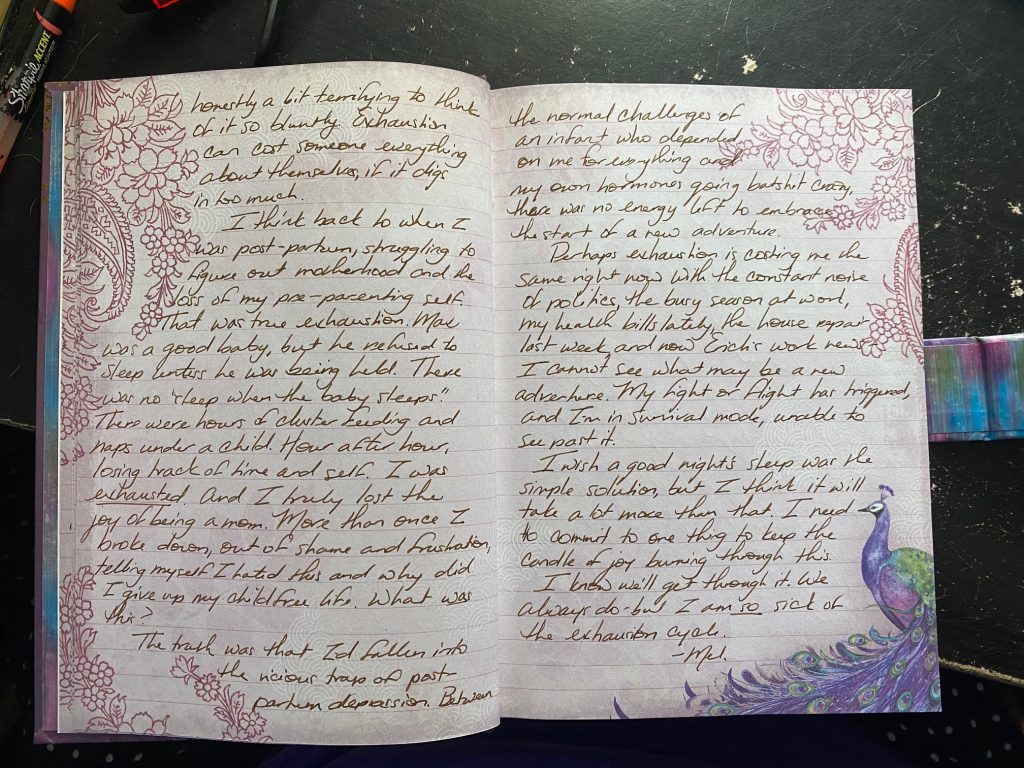 Sharpie ACCENT
honestly a bit terrifying to think
of it so bluntly. Exhaustion
can cost someone everything
about themselves, if it digs
in too much.
I think back to when I
was post-partum, struggling to
figure out motherhood and the
loss of my pre-parenting self.
That was true exhaustion. Max
was a good baby, but he refused to
sleep unless he was being held. There
was no "sleep when the baby sleeps."
There were hours of cluster feeding and
naps under a child. Hour after hour,
losing track of time and self. I was
exhausted. And I truly lost the
joy of being a mom. More than once I
broke down, out of shame and frustration,
telling myself I hated this and why did
I give up my childfree life. What was
this?
The truth was that I'd fallen into
the vicious trap of post-
partum depression. Between
the normal challenges of
an infant who depended
on me for everything and
my own hormones going batshit crazy,
there was no energy left to embrace
the start of a new adventure.
Perhaps exhaustion is costing me the
same right now with the constant noise
of politics, the busy season at work,
my health bills lately, the house repair
last week, and now Erich's work news,
I cannot see what may be a new
adventure. My fight or flight has triggered,
and I'm in survival mode, unable to
see past it.
I wish a good night's sleep was the
simple solution, but I think it will
take a lot more than that. I need
to commit to one thing to keep the
candle of joy burning through this.
I know we'll get through it. We
always do - but I am so sick of
the exhaustion cycle.
-Mel.